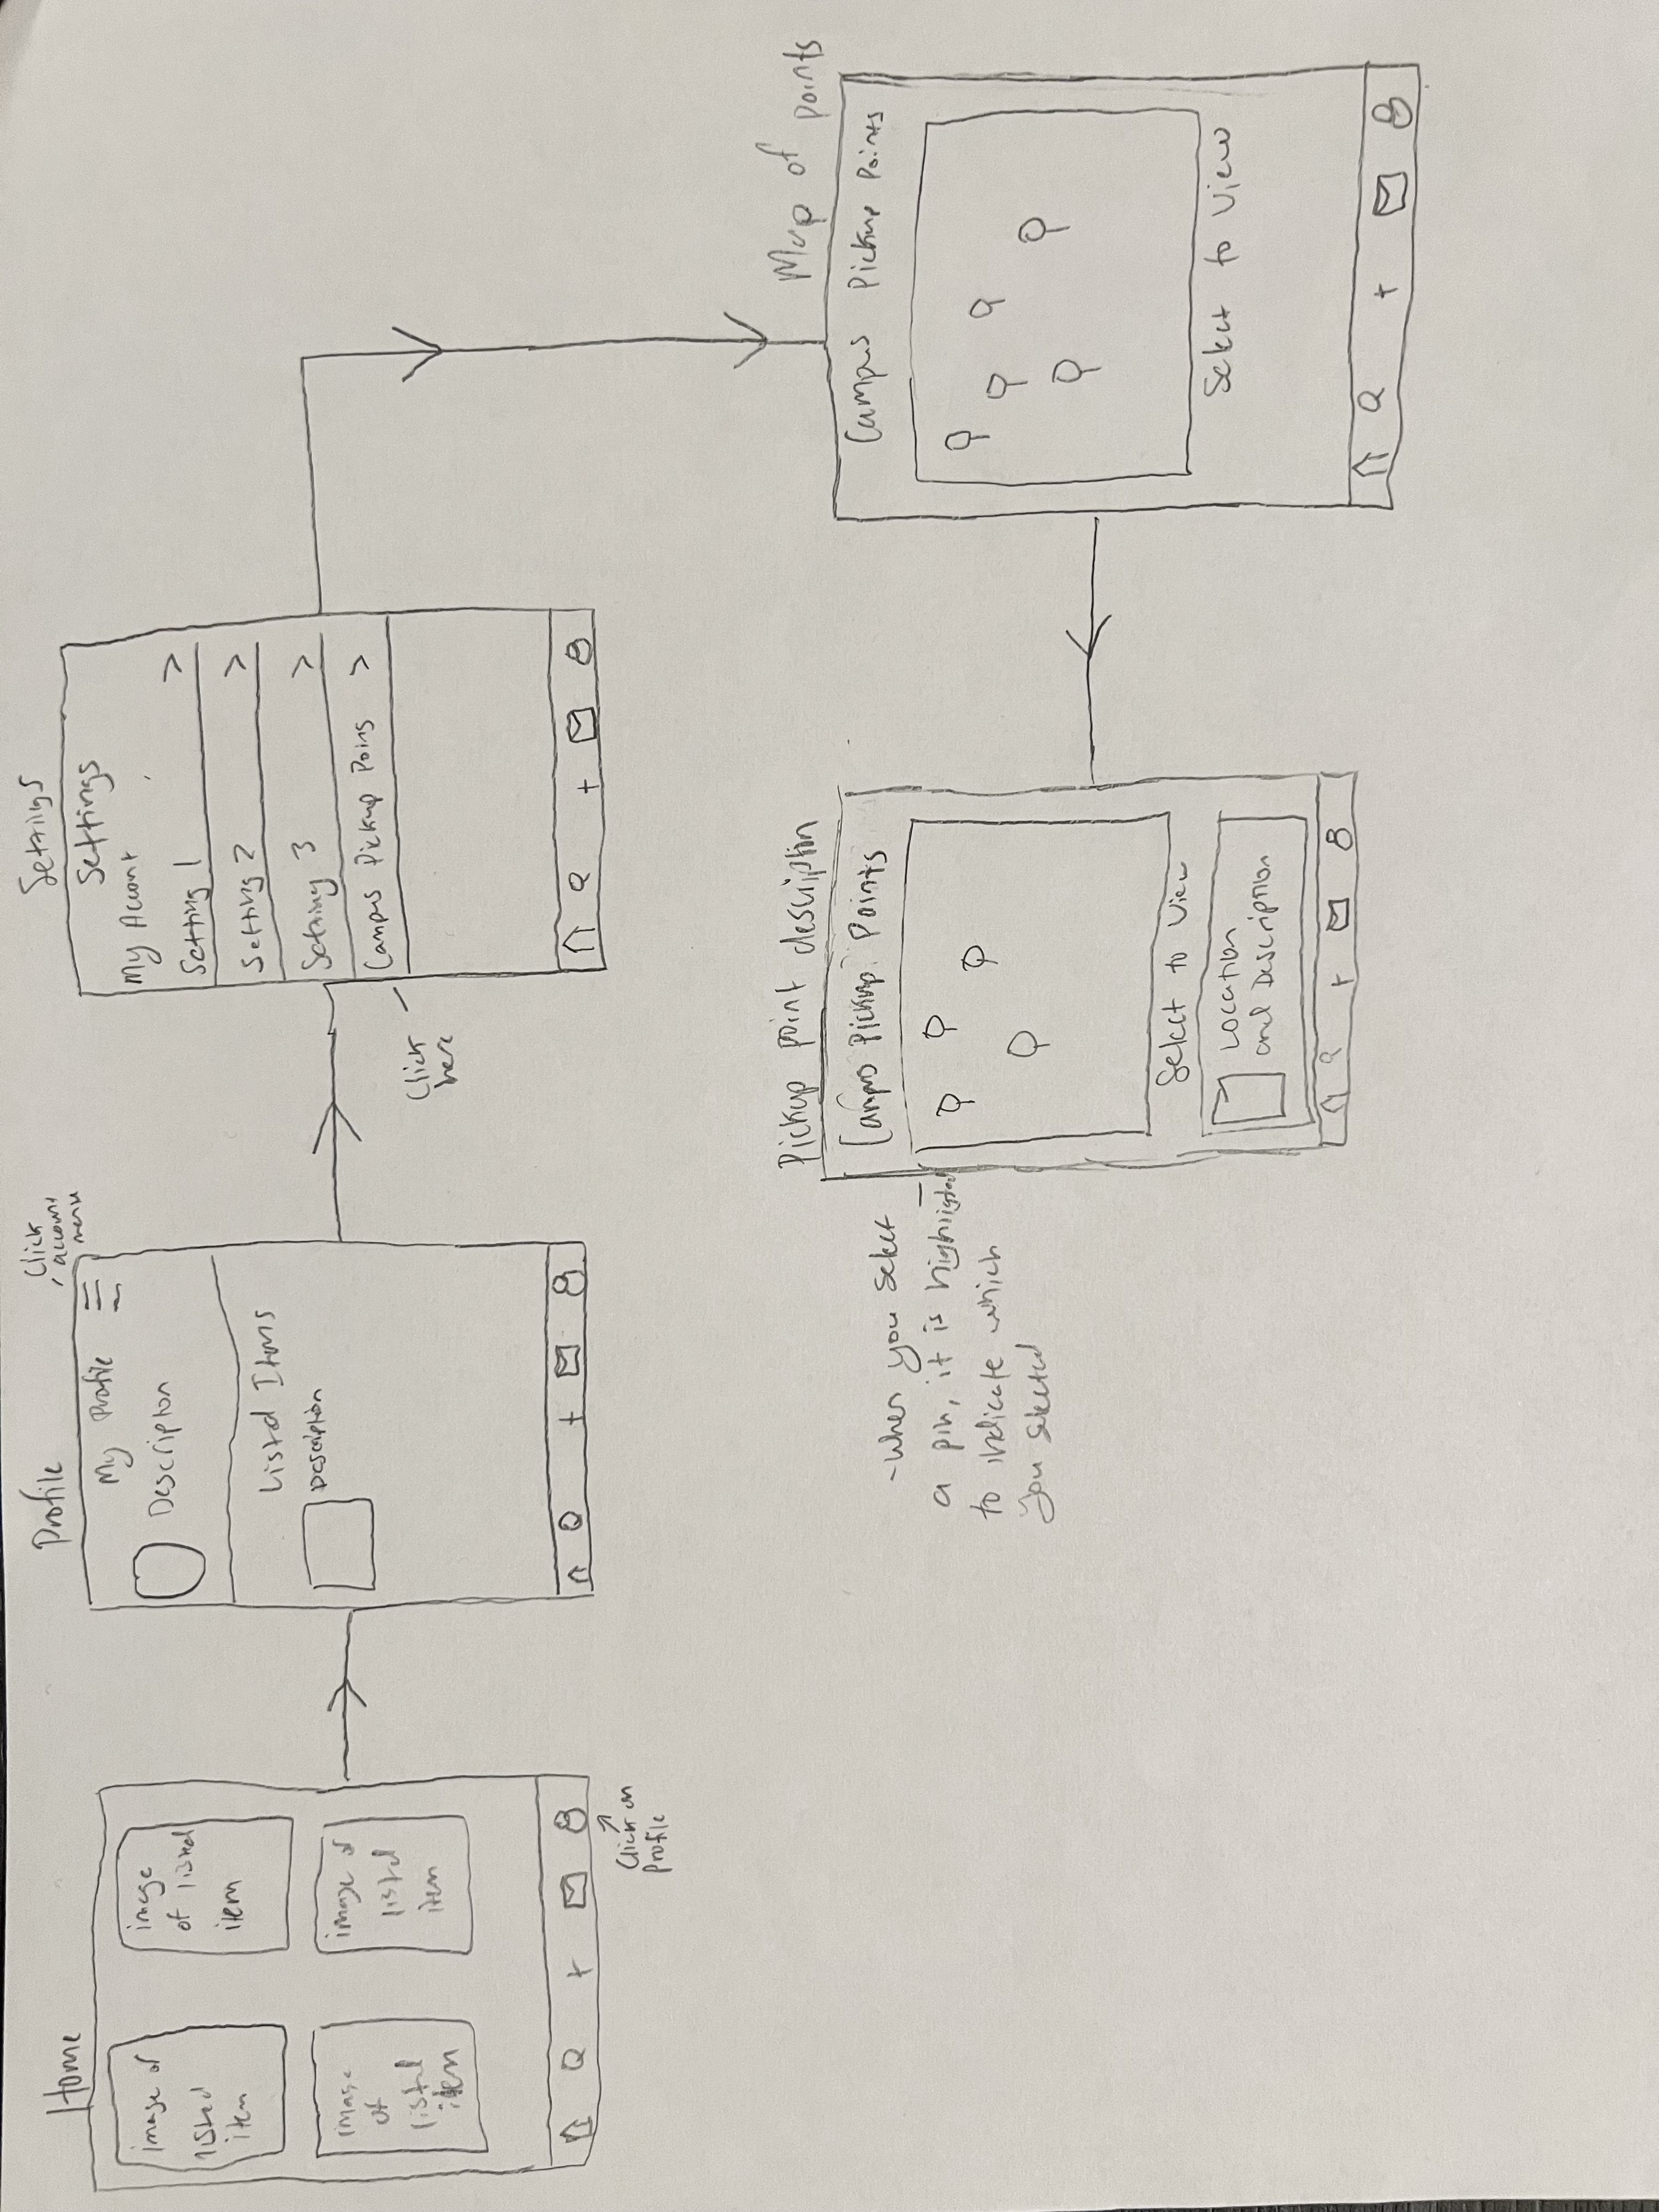 Home
image of
listed
item
image
of listed
item
image
of
listed
item
image of
listed
item
Click on
profile
Profile
Click
account
menu
My Profile
Description
Listed Items
Description
Settings
Settings
My Account
Setting 1
Setting 2
Setting 3
Campus Pickup Poins
Click
here
Map of
points
Campus Pickup Points
Select to View
Pickup point description
Pickup Points
Select to View
Location
and Description
-When you select
a pin, it is highlighted
to indicate which
you selected